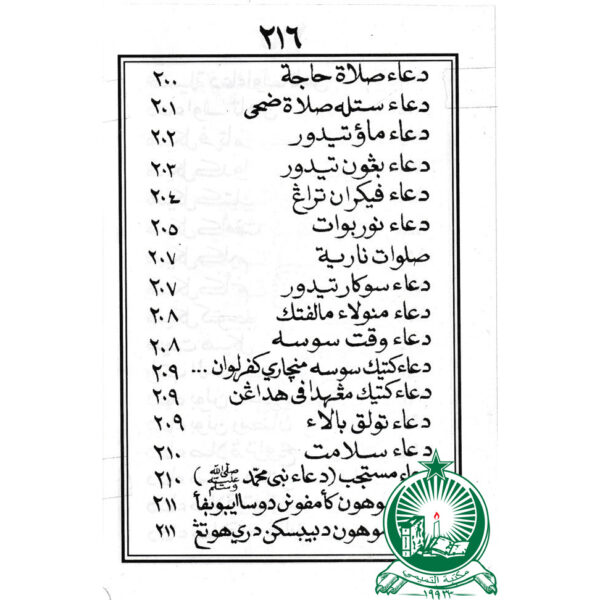 ٢١٦
دعاء صلاة حاجة ٢٠٠
دعاء ستله صلاة ضحى ٢٠١
دعاء ماؤ تيدور ٢٠٢
دعاء بڠون تيدور ٢٠٣
دعاء فيكران تراڠ ٢٠٤
دعاء نوربوات ٢٠٥
صلوات نارية ٢٠٧
دعاء سوكار تيدور ٢٠٧
دعاء منولاء مالفتك ٢٠٨
دعاء وقت سوسه ٢٠٨
دعاء كتيك سوسه منچاري كفرلوان ... ٢٠٩
دعاء كتيك مڠهدافى هداڠن ٢٠٩
دعاء تولق بالاء ٢٠٩
دعاء سلامت ٢١٠
مستجب (دعاء نبي محمد ﷺ) ٢١٠
كأمفونن دوسا ايبو بفأ ٢١١
دبيبسكن دري هوتڠ ٢١١
مكتبة التميمي
١٩٩٢٣